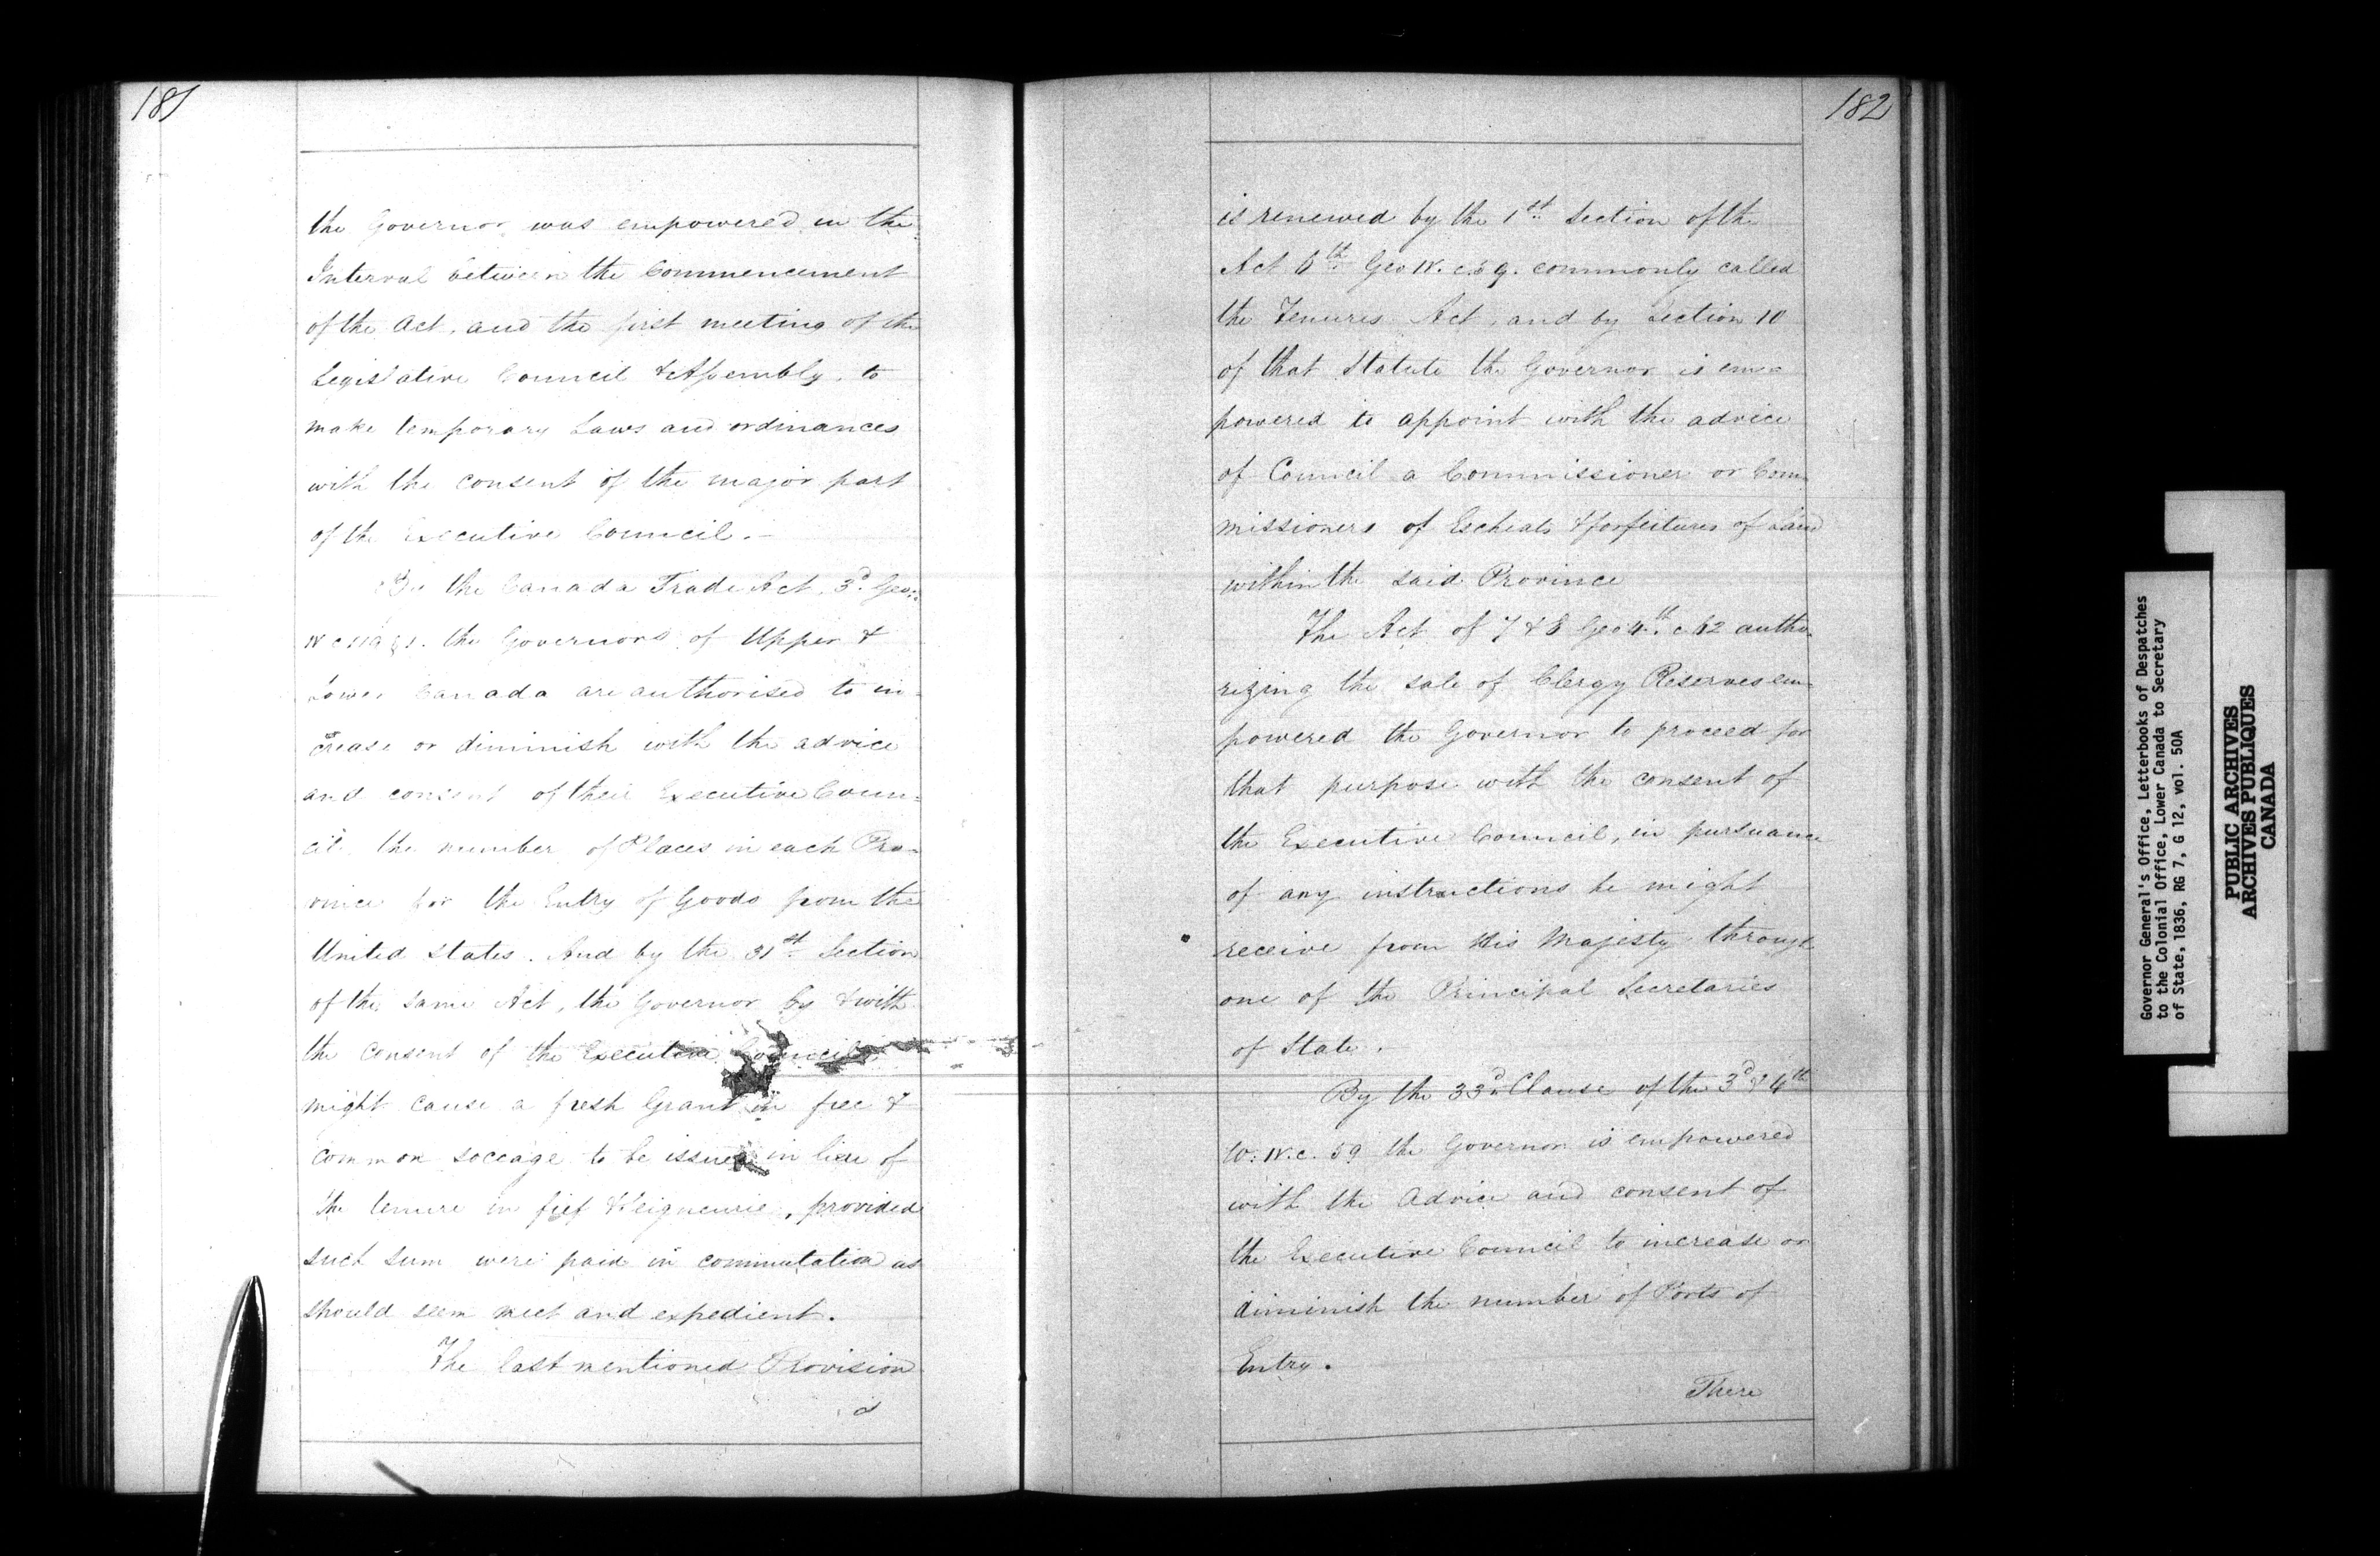 181
the Governor was empowered in the
Interval between the Commencement
of the Act, and the first meeting of the
Legislative Council & Assembly, to
make temporary Laws and ordinances
with the consent of the major part
of the Executive Council.-
By the Canada Trade Act, 3d. Geo:
IV c. 119 the Governors of Upper &
Lower Canada are authorised to in-
crease or diminish with the advice
and consent of their Executive Coun=
cil the number of Places in each Pro=
vince for the Entry of Goods from the
United States. And by the 31st. Section
of the same Act, the Governor by & with
the consent of the Executive Council
might cause a fresh Grant in free &
common soccage to be issued in lieu of
the tenure in fief & Seigneurie, provided
such sum were paid in commutation as
should seem meet and expedient.
The last mentioned Provision
is
182
is renewed by the 1st. Section of the
Act 6th. Geo IV. c. 59. commonly called
the Tenures Act, and by Section 10
of that Statute the Governor is em=
powered to appoint with the advice
of Council a Commissioner or Com-
missioners of Escheats & forfeitures of Land
within the said Province
The Act of 7 & 8 Geo 4th. c 62 autho-
rizing the sale of Clergy Reserves em-
powered the Governor to proceed for
that purpose with the consent of
the Executive Council, in pursuance
of any instructions he might
receive from His Majesty through
one of the Principal Secretaries
of State.
By the 33d. Clause of the 3d & 4th
W: IV. c. 59 the Governor is empowered
with the Advice and consent of
the Executive Council to increase or
diminish the number of Ports of
Entry.
There
Governor General's Office, Letterbooks of Despatches
to the Colonial Office, Lower Canada to Secretary
of State, 1836, RG 7, G 12, vol. 50A
PUBLIC ARCHIVES
ARCHIVES PUBLIQUES
CANADA